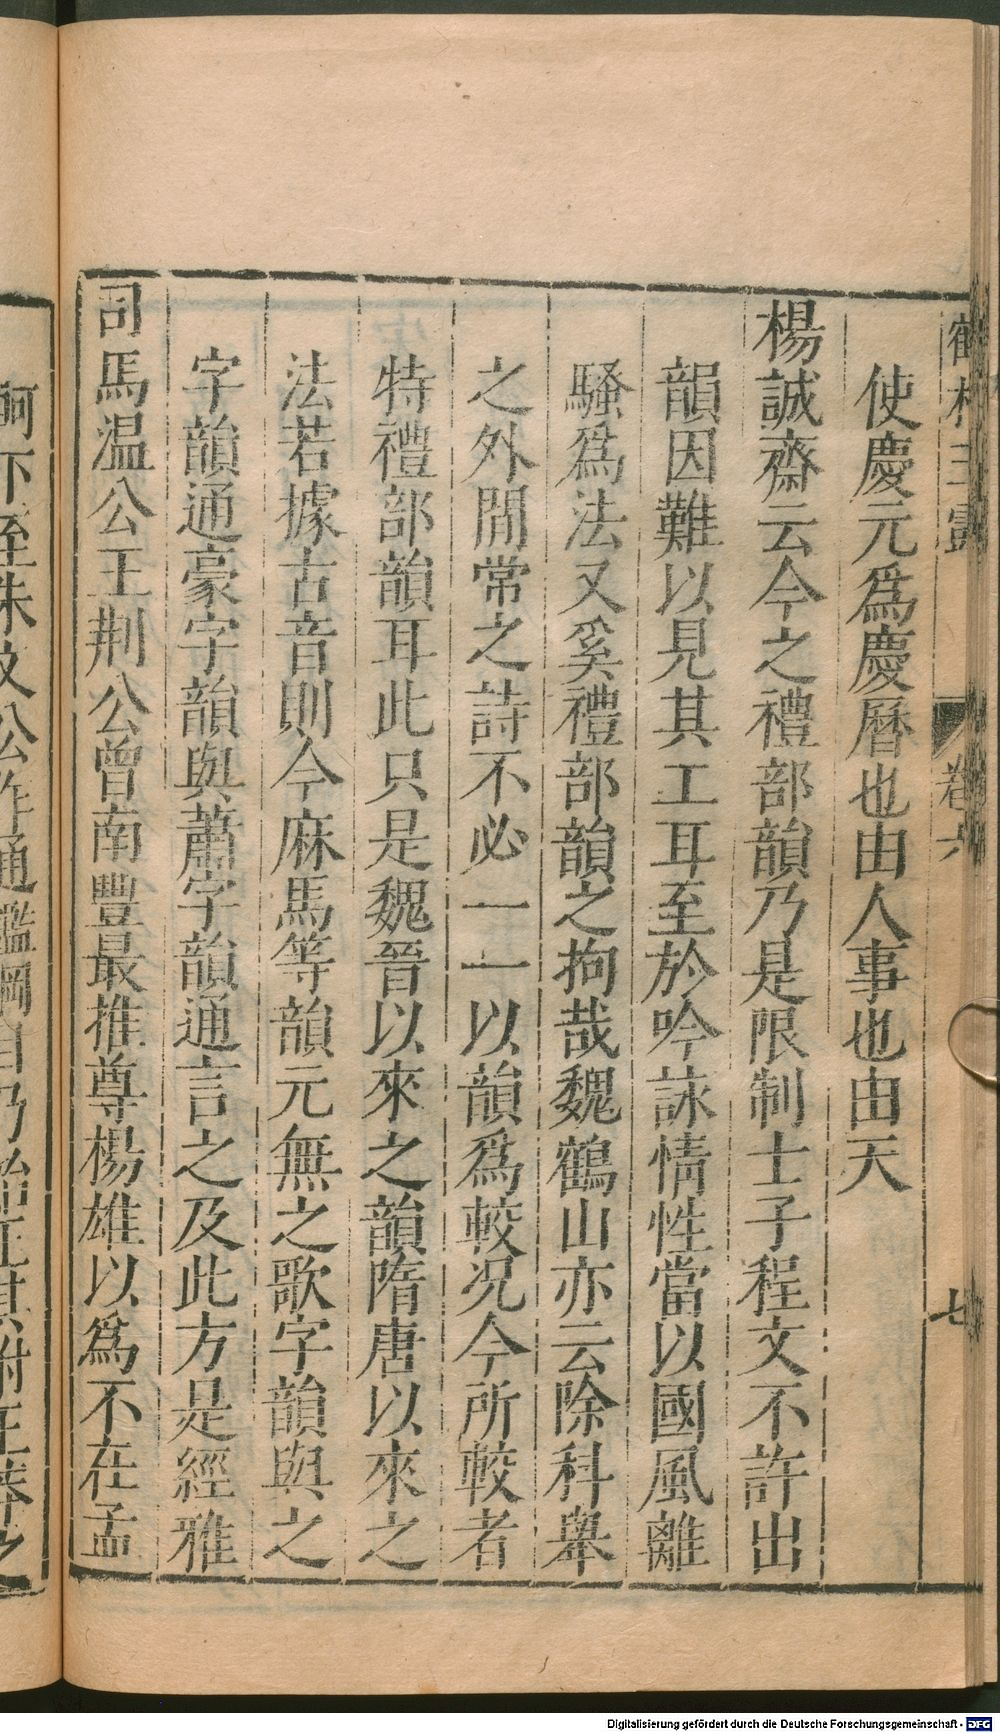 使慶元爲慶曆也由人事也由天
楊誠齋云今之禮部韻乃是限制士子程文不許出
韻因難以見其工耳至於吟詠情性當以國風離
騷爲法又奚禮部韻之拘哉魏鶴山亦云除科舉
之外閒常之詩不必一一以韻爲較况今所較者
特禮部韻耳此只是魏晉以來之韻隋唐以來之
法若據古音則今麻馬等韻元無之歌字韻與之
字韻通豪字韻與蕭字韻通言之及此方是經雅
司馬温公王荆公曾南豐最推尊楊雄以爲不在孟
軻下至朱文公作通鑑綱目乃始正其附王莽之
卷六
七
Digitalisierung gefördert durch die Deutsche Forschungsgemeinschaft - DFG